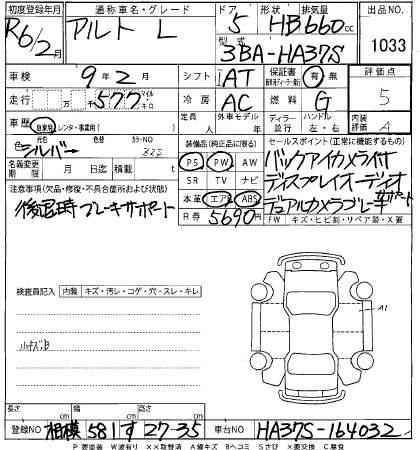 初度登録年月 通称車名・グレード ドア 形状 排気量 出品No
R6/2月 アルト L 5 HB 660cc 1033
型式 3BA-HA37S
車検 9年2月 シフト AT 保証書 有・無 評価点 5
走行 577 マイル キロ 冷房 AC 燃料 G 内装評価 A
車歴 自家用・レンタ・事業用( ) 定員 人 外車モデル 年 ディーラー 並行 ハンドル 左・右
色 シルバー 色替 カラーNO
名義変更期限 月 日迄 積載量 t
装備品(純正品に限る) セールスポイント(正常に機能するもの)
PS PW AW バックアイカメラ付
SR TV ナビ ディスプレイオーディオ
本革 エアB ABS デュアルカメラブレーキサポート
R券 5690円 FW キズ・ヒビ割・リペア跡・X要
注意事項(欠品・修復・不具合箇所および状態)
後退時ブレーキサポート
検査員記入 内装 キズ・汚レ・コゲ・穴・スレ・キレ
A1
長さ cm 幅 cm 高さ cm
登録NO 相模 581 す 27-35 車台NO HA37S-164032
P 要塗装 W波有り ××取替済 A線キズ Bヘコミ Sさび ×要交換 C腐食